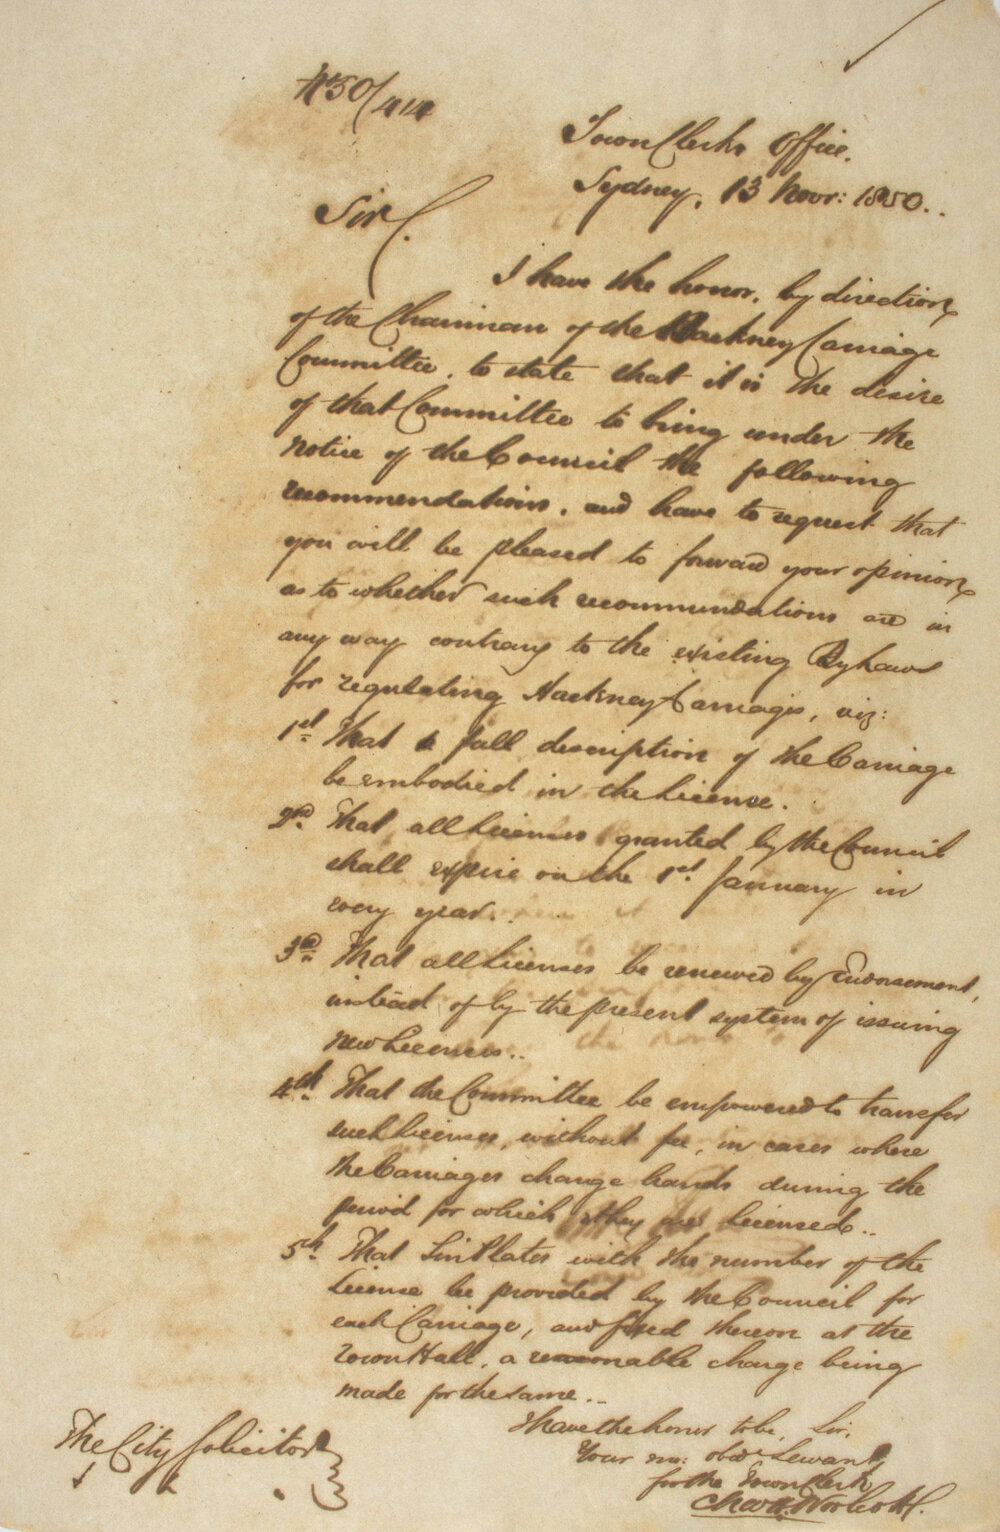 450/414
Town Clerks Office.
Sydney, 13 Novr: 1850..
Sir
I have the honor, by direction
of the Chairman of the Hackney Carriage
Committee, to state that it is the desire
of that Committee to bring under the
notice of the Council the following
recommendations, and have to request that
you will be pleased to forward your opinion
as to whether such recommendations are in
any way contrary to the existing Byelaws
for regulating Hackney Carriages, viz:
1st That a full description of the Carriage
be embodied in the License.
2nd That all Licenses granted by the Council
shall expire on the 1st January in
every year.
3rd That all Licenses be renewed by Endorsement,
instead of by the present system of issuing
new Licenses..
4th That the Committee be empowered to transfer
such Licenses, without fee, in cases where
the Carriages change hands during the
period for which they are licensed..
5th That Tin Plates with the number of the
License be provided by the Council for
each Carriage, and fixed thereon at the
Town Hall, a reasonable charge being
made for the same..
I have the honor to be, Sir,
Your mo: obdt Servant
for the Town Clerk
Chas H. Woolcott
The City Solicitor